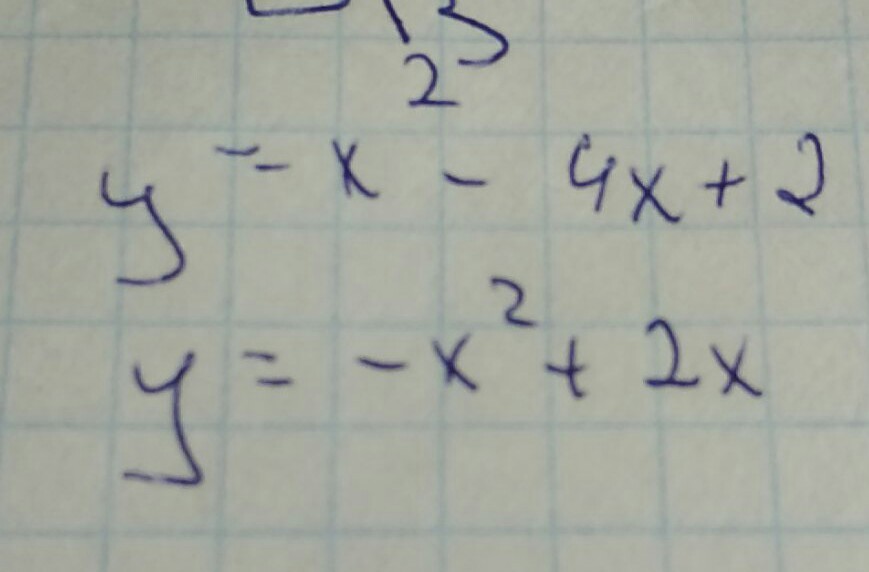 y = x² - 4x + 2
y = -x² + 2x